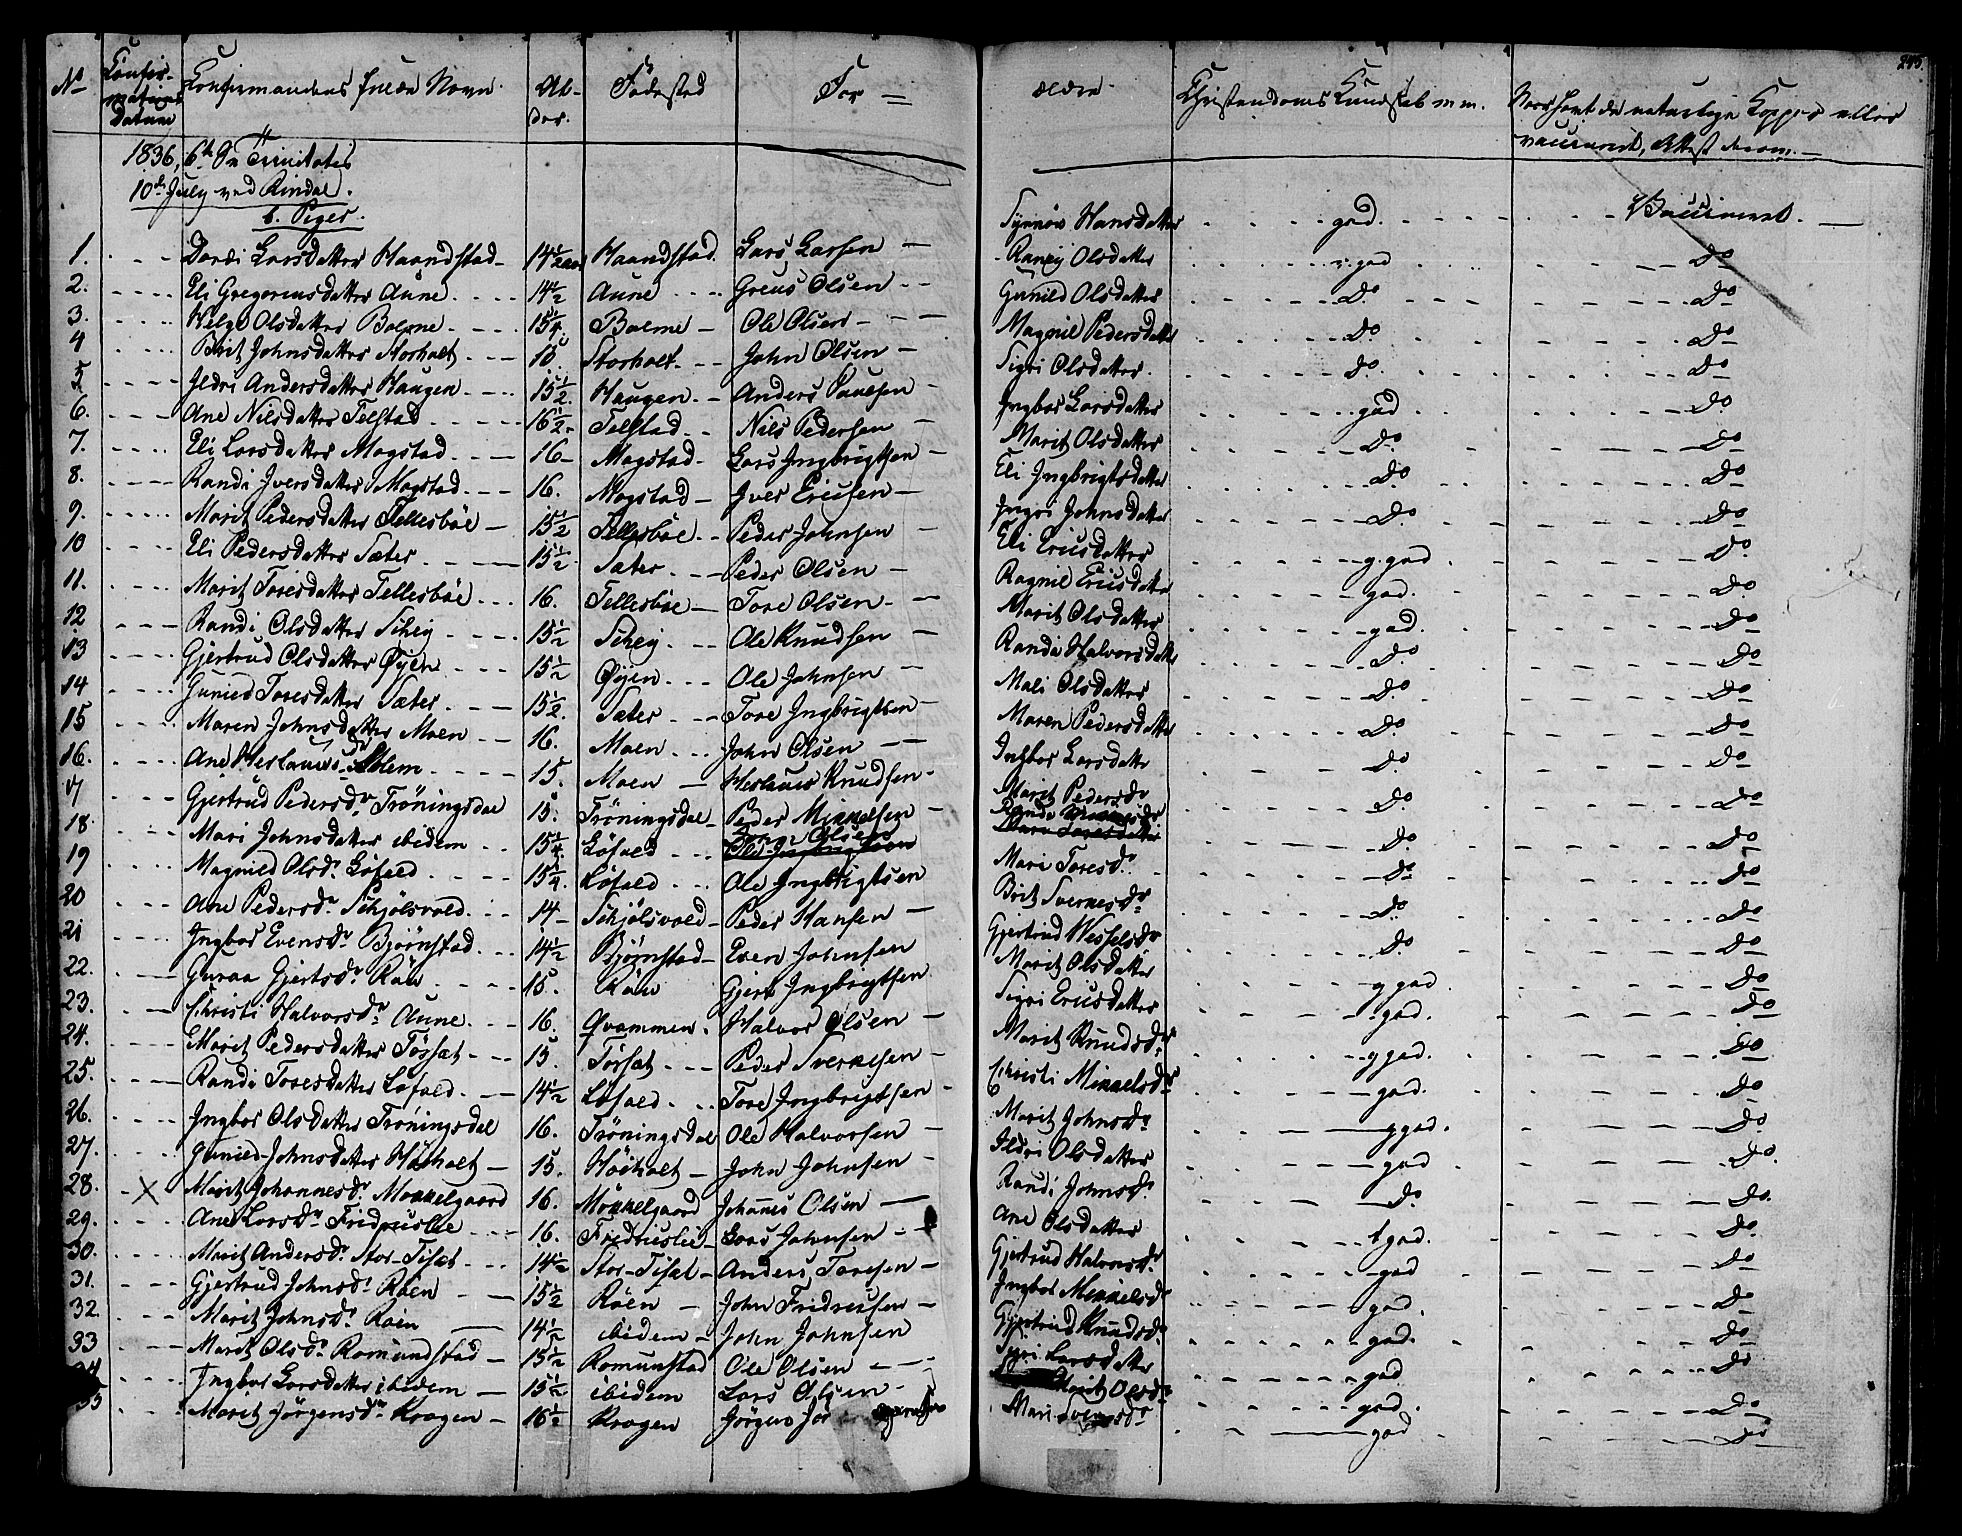 245.
No Confir-mations Datum Confirmandens fulde Navn. Al-der. Födested For = ældre. Christendoms Kundskab m. m. Har havt de naturlige Kopper eller vaccineret, Attest derom. —
1836, 6te S. Trinitatis
10de July ved Rindal.
b. Piger.
1. Dordi Larsdatter Haandstad 14 1/2 aar Haandstad Lars Larsen Synnøv Hansdatter god. Vaccineret.
2. Eli Gregoriusdatter Aune 14 1/2 Aune Greus Olsen Ranig Olsdatter v. god Do
3. Helge Olsdatter Bolme 15 1/4 Bolme Ole Olsen Gunild Olsdatter Do Do
4 Brit Johnsdatter Storholt 15 Storholt John Olsen Magnil Pedersdatter Do Do
5 Ildri Andersdatter Haugen 15 1/2 Haugen Anders Paulsen Sigri Olsdatter Do Do
6. Ane Nilsdatter Telstad 16 1/2 Telstad Nils Pedersen Ingbor Larsdatter god Do
7. Eli Larsdatter Mogstad 16 Mogstad Lars Ingbrigtsen Marit Olsdatter Do Do
8. Randi Iversdatter Mogstad 16. Mogstad Iver Ericsen Eli Ingbrigtsdatter Do Do
9. Marit Pedersdatter Tellesböe 15 1/2 Tellesböe Peder Johnsen Ingri Johnsdatter Do Do
10 Eli Pedersdatter Sæter 15 1/2 Sæter Peder Olsen Eli Ericsdatter g. god Do
11. Marit Toresdatter Tellesböe 16. Tellesböe Tore Olsen Ragnil Ericsdatter god. Do
12 Randi Olsdatter Schei 15 1/2 Schei Ole Knudsen Marit Olsdatter god. Do
13 Gjertrud Olsdatter Øyen 15 1/2 Øyen Ole Johnsen Randi Halvorsdatter Do Do
14 Gunild Toresdatter Sæter 15 1/2 Sæter Tore Ingbrigtsen Mali Olsdatter Do Do
15 Maren Johnsdatter Moen 16. Moen John Olsen Maren Pedersdatter Do Do
16. Ane Herlaugs Dr Solem 15. Moen Herlaus Knudsen Ingbor Larsdatter Do Do
17 Gjertrud Pedersdr Tröningsdal 15. Tröningsdal Peder Mikkelsen Marit Pedersdr Do Do
18. Mari Johnsdatter ibidem 15 1/4 Löfald John Olsen Do Do
19 Magnild Olsdr. Löfald 15 1/4 Löfald Ole Ingbrigtsen Mari Toresdr. Do Do
20 Ane Pedersdr. Schjölsvold 14 Schjölsvold Peder Hansen Brit Svernesdr Do Do
21 Ingbor Evensdr Bjørnstad 14 1/2 Bjørnstad Even Johnsen Gjertrud Wesselsdr Do Do
22. Guroa Gjertsdr. Röen 15. Röen Gjert Ingbrigtsen Marit Olsdatter g god Do
23. Christi Halvorsdr Aune 16. Qvammen Halvor Olsen Sigri Ericsdatter god. Do
24. Marit Pedersdatter Tösset 15. Tösset Peder Svernesen Marit Knudsdr g god. Do
25. Randi Toresdatter Löfald 14 1/2 Löfald Tore Ingbrigtsen Christi Mikkelsdr god. Do
26. Ingbor Olsdatter Tröningsdal 16. Tröningsdal Ole Halvorsen Marit Johnsdr. g god. Do
27. Gunild Johnsdatter Höiholt 15. Höiholt John Johnsen Ildri Olsdatter god Do.
28. X Marit Johannesdr. Mokkelgaard 16. Mokkelgaard Johanes Olsen Randi Johnsdr. Do Do.
29. Ane Larsdr. Fridriuslie 16. Fridriuslie Lars Johnsen Ane Olsdatter t god. Do
30. Marit Andersdr. Stor-Tiset 14 1/2 Stor-Tiset Anders Toresen Gjertrud Halvorsdr. god Do
31. Gjertrud Johnsdr. Röen 15 1/2 Röen John Fridricsen Ingbor Mikkelsdr god. Do
32. Marit Johnsdr. Röen 14 1/2 ibidem John Johnsen Gjertrud Knudsdr. god. Do
33 Marit Olsdr. Romundstad 15 1/2 Romunstad Ole Olsen Sigri Larsdatter god Do
34 Ingbor Larsdatter ibidem 15 1/2 ibidem Lars Olsen Marit Olsdr. god. Do
35 Marit Jörgensdr. Krogen 16 1/2 Krogen Jörgen Mari Svernsdr god Do